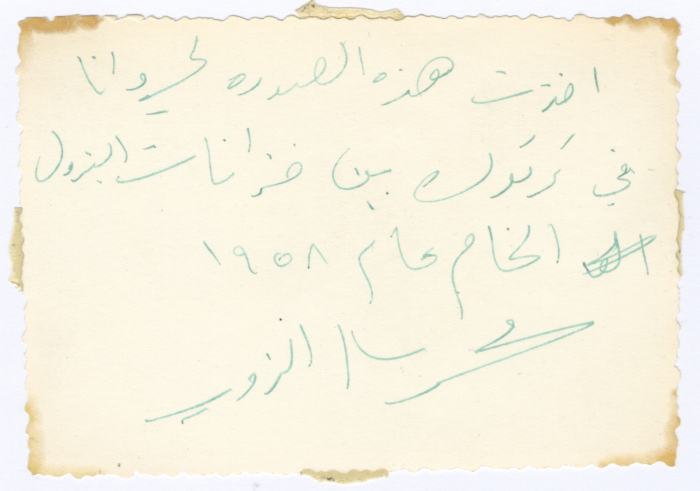 اخذت هذه الصوره لي وانا
في كركوك بين خزانات البترول
الخام عام ١٩٥٨